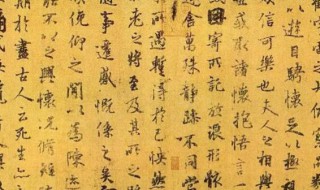 以遊目騁懷足以極
信可樂也夫人之相與
或取諸懷抱悟言一
因寄所託放浪形骸
舍萬殊靜躁不同當
所遇蹔得於己怏然
老之將至及其所之
事遷感慨係之矣
俛仰之閒以為陳
能不以之興懷況脩短
期於盡古人云死生